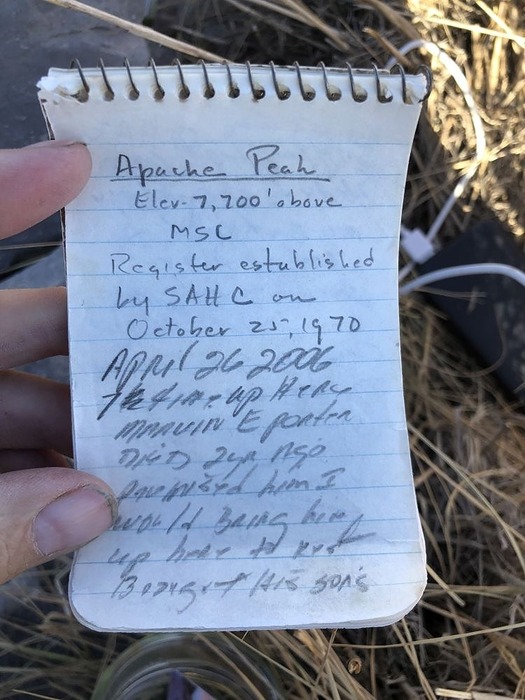 Apache Peak
Elev. 7,700' above
MSC
Register established
by SAHC on
October 25, 1970
APRIL 26 2006
7th time up Here
MARVIN E porter
DIED 2yr Ago
promised him I
would Bring him
up here to rest
Brought His son's